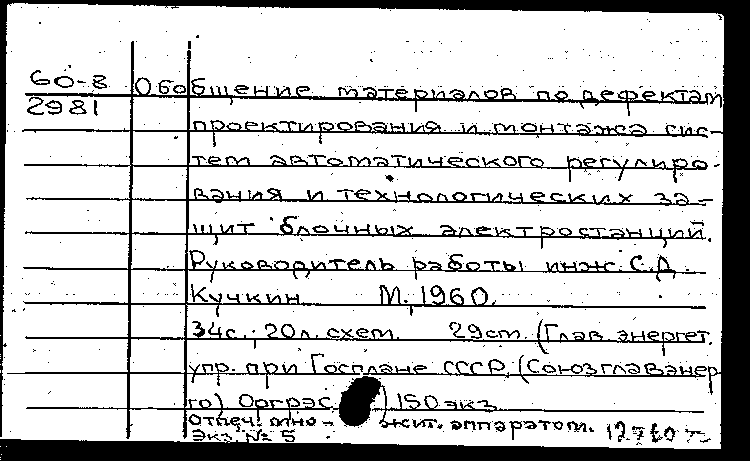 60-8
2981
Обобщение материалов по дефектам
проектирования и монтажа сис-
тем автоматического регулиро-
вания и технологических за-
щит блочных электростанций.
Руководитель работы инж. С.Д.
Кучкин М., 1960.
34с., 20л. схем. 29см. (Глав. энергет.
упр. при Госплане СССР, (Союзглавэнер-
го) Оргрэс. ) 150 экз.
Отпеч. мно- жит. аппаратом.
Экз. № 5